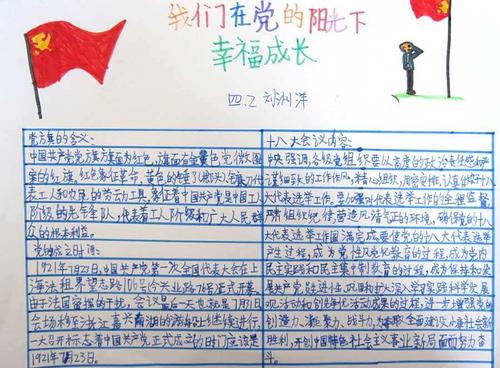 我们在党的阳光下
幸福成长
四.2 刘洲洋
党旗的含义:
中国共产党党旗旗面为红色,旗面有金黄色党徽图
案的红旗。红色象征革命,黄色的锤子、镰刀代
表工人和农民的劳动工具,象征着中国共产党是中国工人
阶级的先锋队,代表着工人阶级和广大人民群
众的根本利益。
党的成立时间:
1921年7月22日,中国共产党第一次全国代表大会在上
海法租界望志路106号(今兴业路76号)正式开幕。
由于法国密探的干扰,会议最后一天也就是7月31日
会场移至浙江嘉兴南湖的游船上继续进行
一大召开标志着中国共产党正式成立的时间应该是
1921年7月23日。
十八大会议内容:
中央强调,各级党组织要以高度的政治责任感和严
谨细致的工作作风,精心组织,周密安排,认真做好十八
大代表选举工作。要加强对代表选举工作的全程监督
严肃组织纪律,营造风清气正的环境,确保党的十八
大代表选举工作圆满完成。要使党的十八大代表选举
产生过程,成为党性党风党纪教育的过程,成为党内
民主实践和民主集中制教育的过程,成为保持和发
展共产党员先进性、巩固和扩大深入学习实践科学发展
观活动和创先争优活动成果的过程,进一步增强党的
创造力、凝聚力、战斗力,为夺取全面建设小康社会新
胜利,开创中国特色社会主义事业新局面而努力奋
斗。